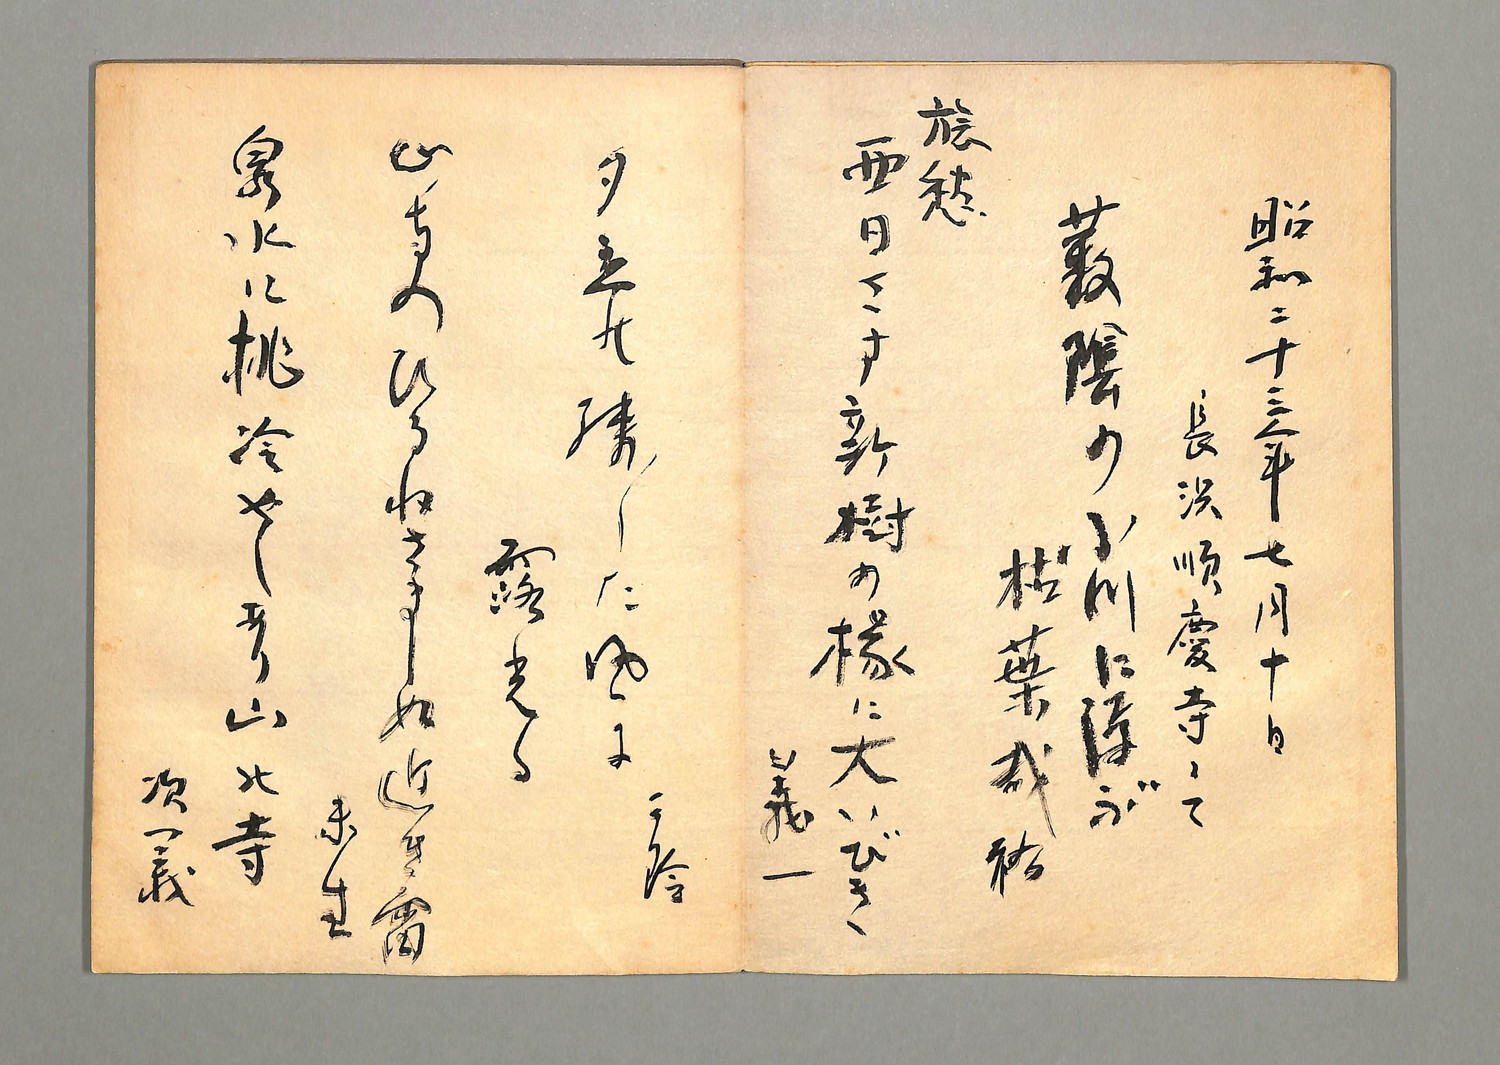 昭和二十三年七月十日
長浜順慶寺にて
薮陰の小川に浮ぶ
枯葉哉 裕
旅愁
西日さす新樹の椽に大いびき
義一
夕立の残した
露光る
山寺のひるねさましぬ近き雷
未生
泉水に桃冷やしあり山の寺
次義